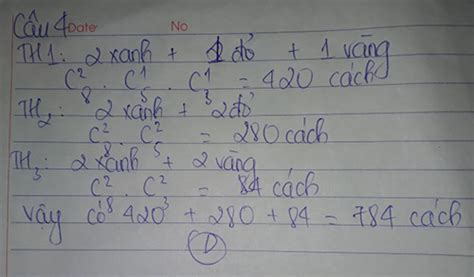 Câu 4 Date No
TH1: 2 xanh + 1 đỏ + 1 vàng
C²₈ . C¹₅ . C¹₃ = 420 cách
TH₂: 2 xanh + 2 đỏ
C²₈ . C²₅ = 280 cách
TH₃: 2 xanh + 2 vàng
C²₈ . C²₃ = 84 cách
vậy có 420 + 280 + 84 = 784 cách
D